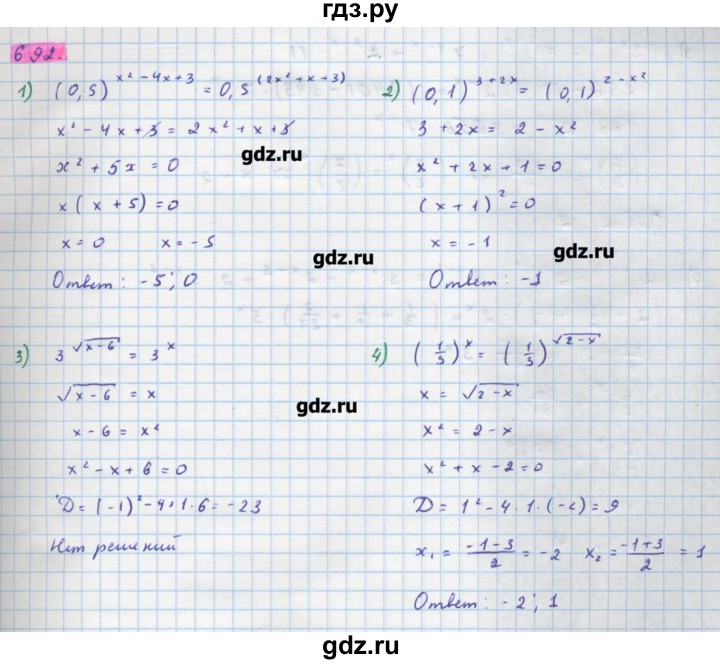 гдз.ру
692.
1) (0,5)^(x² - 4x + 3) = 0,5^(2x² + x + 3)
x² - 4x + 3 = 2x² + x + 3
x² + 5x = 0
x(x + 5) = 0
x = 0 x = -5
Ответ: -5; 0
2) (0,1)^(3 + 2x) = (0,1)^(2 - x²)
3 + 2x = 2 - x²
x² + 2x + 1 = 0
(x + 1)² = 0
x = -1
Ответ: -1
gdz.ru
gdz.ru
gdz.ru
gdz.ru
3) 3^√(x-6) = 3^x
√(x-6) = x
x - 6 = x²
x² - x + 6 = 0
D = (-1)² - 4·1·6 = -23
Нет решений
gdz.ru
4) (1/5)^x = (1/5)^√(2-x)
x = √(2-x)
x² = 2 - x
x² + x - 2 = 0
D = 1² - 4·1·(-2) = 9
x₁ = (-1-3)/2 = -2 x₂ = (-1+3)/2 = 1
Ответ: -2; 1
gdz.ru
gdz.ru